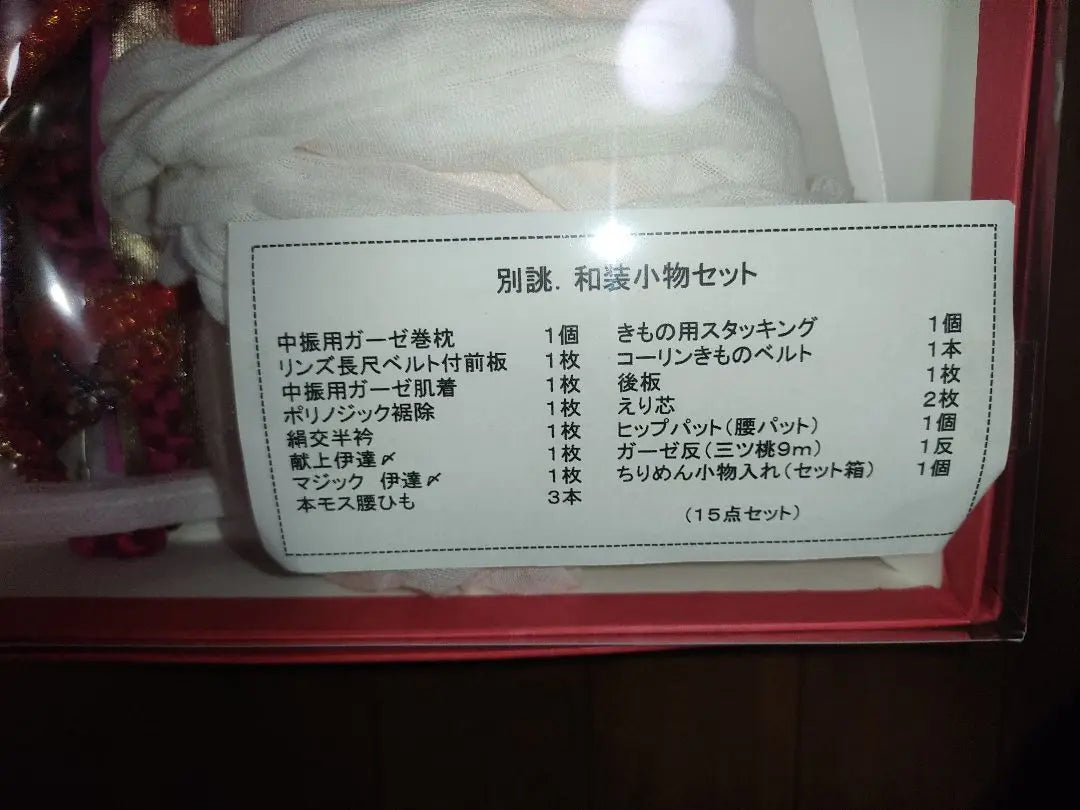 別誂.和装小物セット
中振用ガーゼ巻枕 1個
リンズ長尺ベルト付前板 1枚
中振用ガーゼ肌着 1枚
ポリノジック裾除 1枚
絹交半衿 1枚
献上伊達〆 1枚
マジック 伊達〆 1枚
本モス腰ひも 3本
きもの用スタッキング 1個
コーリンきものベルト 1本
後板 1枚
えり芯 2枚
ヒップパット(腰パット) 1個
ガーゼ反(三ツ桃9m) 1反
ちりめん小物入れ(セット箱) 1個
(15点セット)